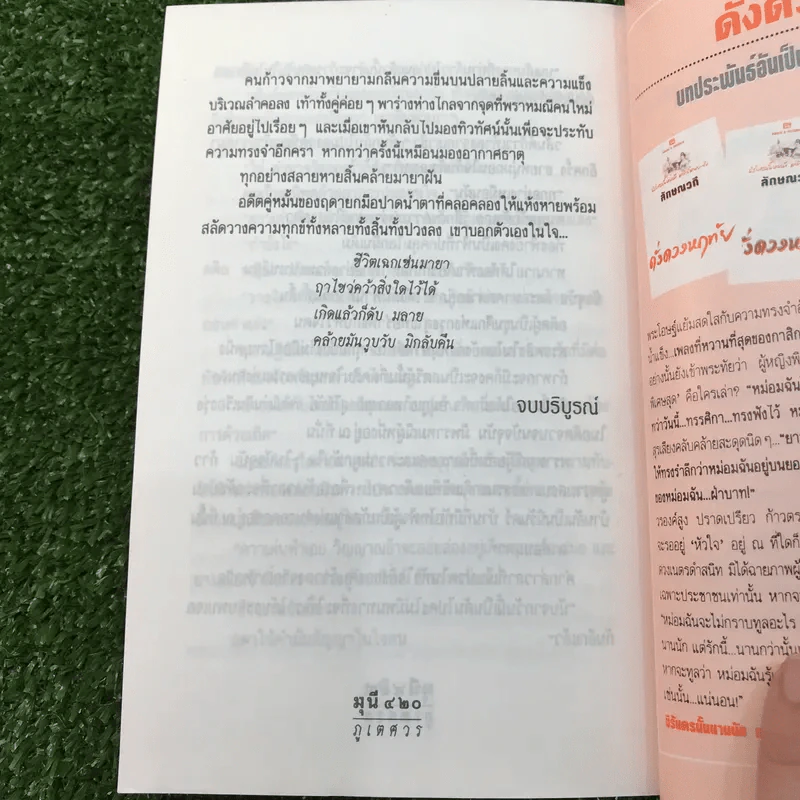 คนก้าวจากมาพยายามกลืนความขื่นบนปลายลิ้นและความแข็ง
บริเวณลำคอลง เท้าทั้งคู่ค่อย ๆ พาร่างห่างไกลจากจุดที่พราหมณีคนใหม่
อาศัยอยู่ไปเรื่อย ๆ และเมื่อเขาหันกลับไปมองทิวทัศน์นั้นเพื่อจะประทับ
ความทรงจำอีกครา หากทว่าครั้งนี้เหมือนมองอากาศธาตุ
ทุกอย่างสลายหายสิ้นคล้ายมายาฝัน
อดีตคู่หมั้นของฤดายกมือปาดน้ำตาที่คลอคลองให้แห้งหายพร้อม
สลัดวางความทุกข์ทั้งหลายทั้งสิ้นทั้งปวงลง เขาบอกตัวเองในใจ...
ชีวิตเฉกเช่นมายา
ฤาไขว่คว้าสิ่งใดไว้ได้
เกิดแล้วก็ดับ มลาย
คล้ายมันวูบวับ มิกลับคืน
จบบริบูรณ์
มุนี ๔๒๐
ภูเตศวร
บทประพันธ์อันเป็น
ลักษณวดี
ลักษณวดี
ดั่งดวงหฤทัย
พระโอษฐ์แย้มสดใสกับความทรงจำอั
น้ำแข็ง...เพลงที่หวานที่สุดของกาสิก
อย่างนั้นยังเข้าพระทัยว่า ผู้หญิงพิ
พิเศษสุด' คือใครเล่า? "หม่อมฉัน
ทว่าวันนี้...ทรรศิกา...ทรงฟังไว้ หม่
สุรเสียงคลับคล้ายสะดุดนิด ๆ..."ยา
ให้ทรงรำลึกว่าหม่อมฉันอยู่บนยอ
ของหม่อมฉัน...ฝ่าบาท!"
วรองค์สูง ปราดเปรียว ก้าวตร
จะรออยู่ 'หัวใจ' อยู่ ณ ที่ใดก็
ดวงเนตรดำสนิท มิได้ฉายภาพผู้
เฉพาะประชาชนเท่านั้น หากจ
"หม่อมฉันจะไม่กราบทูลอะไร
นานนัก แต่รักนี้...นานกว่านั้น
หากจะทูลว่า หม่อมฉันรั
เช่นนั้น...แน่นอน!"
นิรันดรนั้นนานนัก